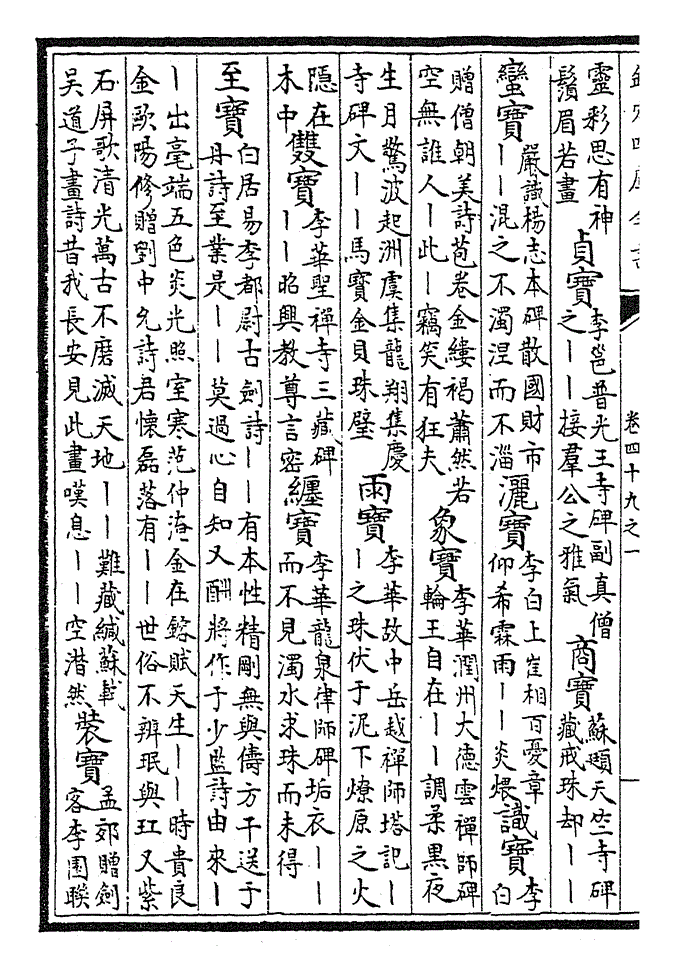 欽定四庫全書 卷四十九之一
靈彩思有神
鬚眉若畫
貞寶
李邕普光王寺碑副真僧
之||接羣公之雅氣
商寶
蘇頲天竺寺碑
藏戒珠却||
蠻寶
嚴識楊志本碑散國財市
||混之不濁涅而不淄
灑寶
李白上崔相百憂章
仰希霖雨||炎煨
識寶
李
白
贈僧朝美詩苞卷金縷褐蕭然若
空無誰人|此|竊笑有狂夫
象寶
李華潤州大德雲禪師碑
輪王自在||調柔黑夜
生月驚波起洲虞集龍翔集慶
寺碑文||馬寶金貝珠璧
雨寶
李華故中岳越禪師塔記|
|之珠伏于泥下燎原之火
隱在
木中
雙寶
李華聖禪寺三藏碑
||昭興教尊言密
纏寶
李華龍泉律師碑垢衣||
而不見濁水求珠而未得
至寶
白居易李都尉古劍詩||有本性精剛無與儔方干送于
丹詩至業是||莫過心自知又酬將作于少監詩由來|
|出毫端五色炎光照室寒范仲淹金在鎔賦天生||時貴良
金歐陽修贈劉中允詩君懷磊落有||世俗不辨珉與玒又紫
石屏歌清光萬古不磨滅天地||難藏緘蘇軾
吳道子畫詩昔我長安見此畫嘆息||空潸然
裝寶
孟郊贈劍
客李園聯